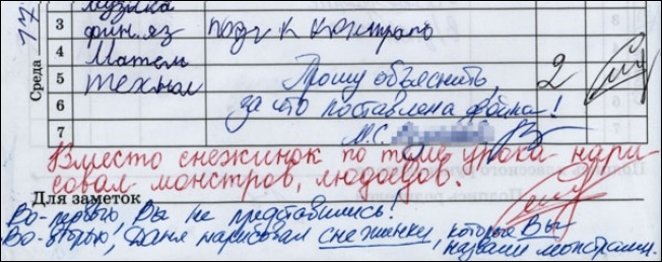 17
Среда
музыка
3 фин. яз подг к
4 Матем
5 технол Прошу объяснить, 2
6 за что поставлена двойка!
7 М.С.
Вместо снежинок по теме урока нари
совал монстров, людоедов.
Для заметок
Во-первых, Вы не представились!
Во-вторых, Даня нарисовал снежинки, которые Вы
назвали монстрами.